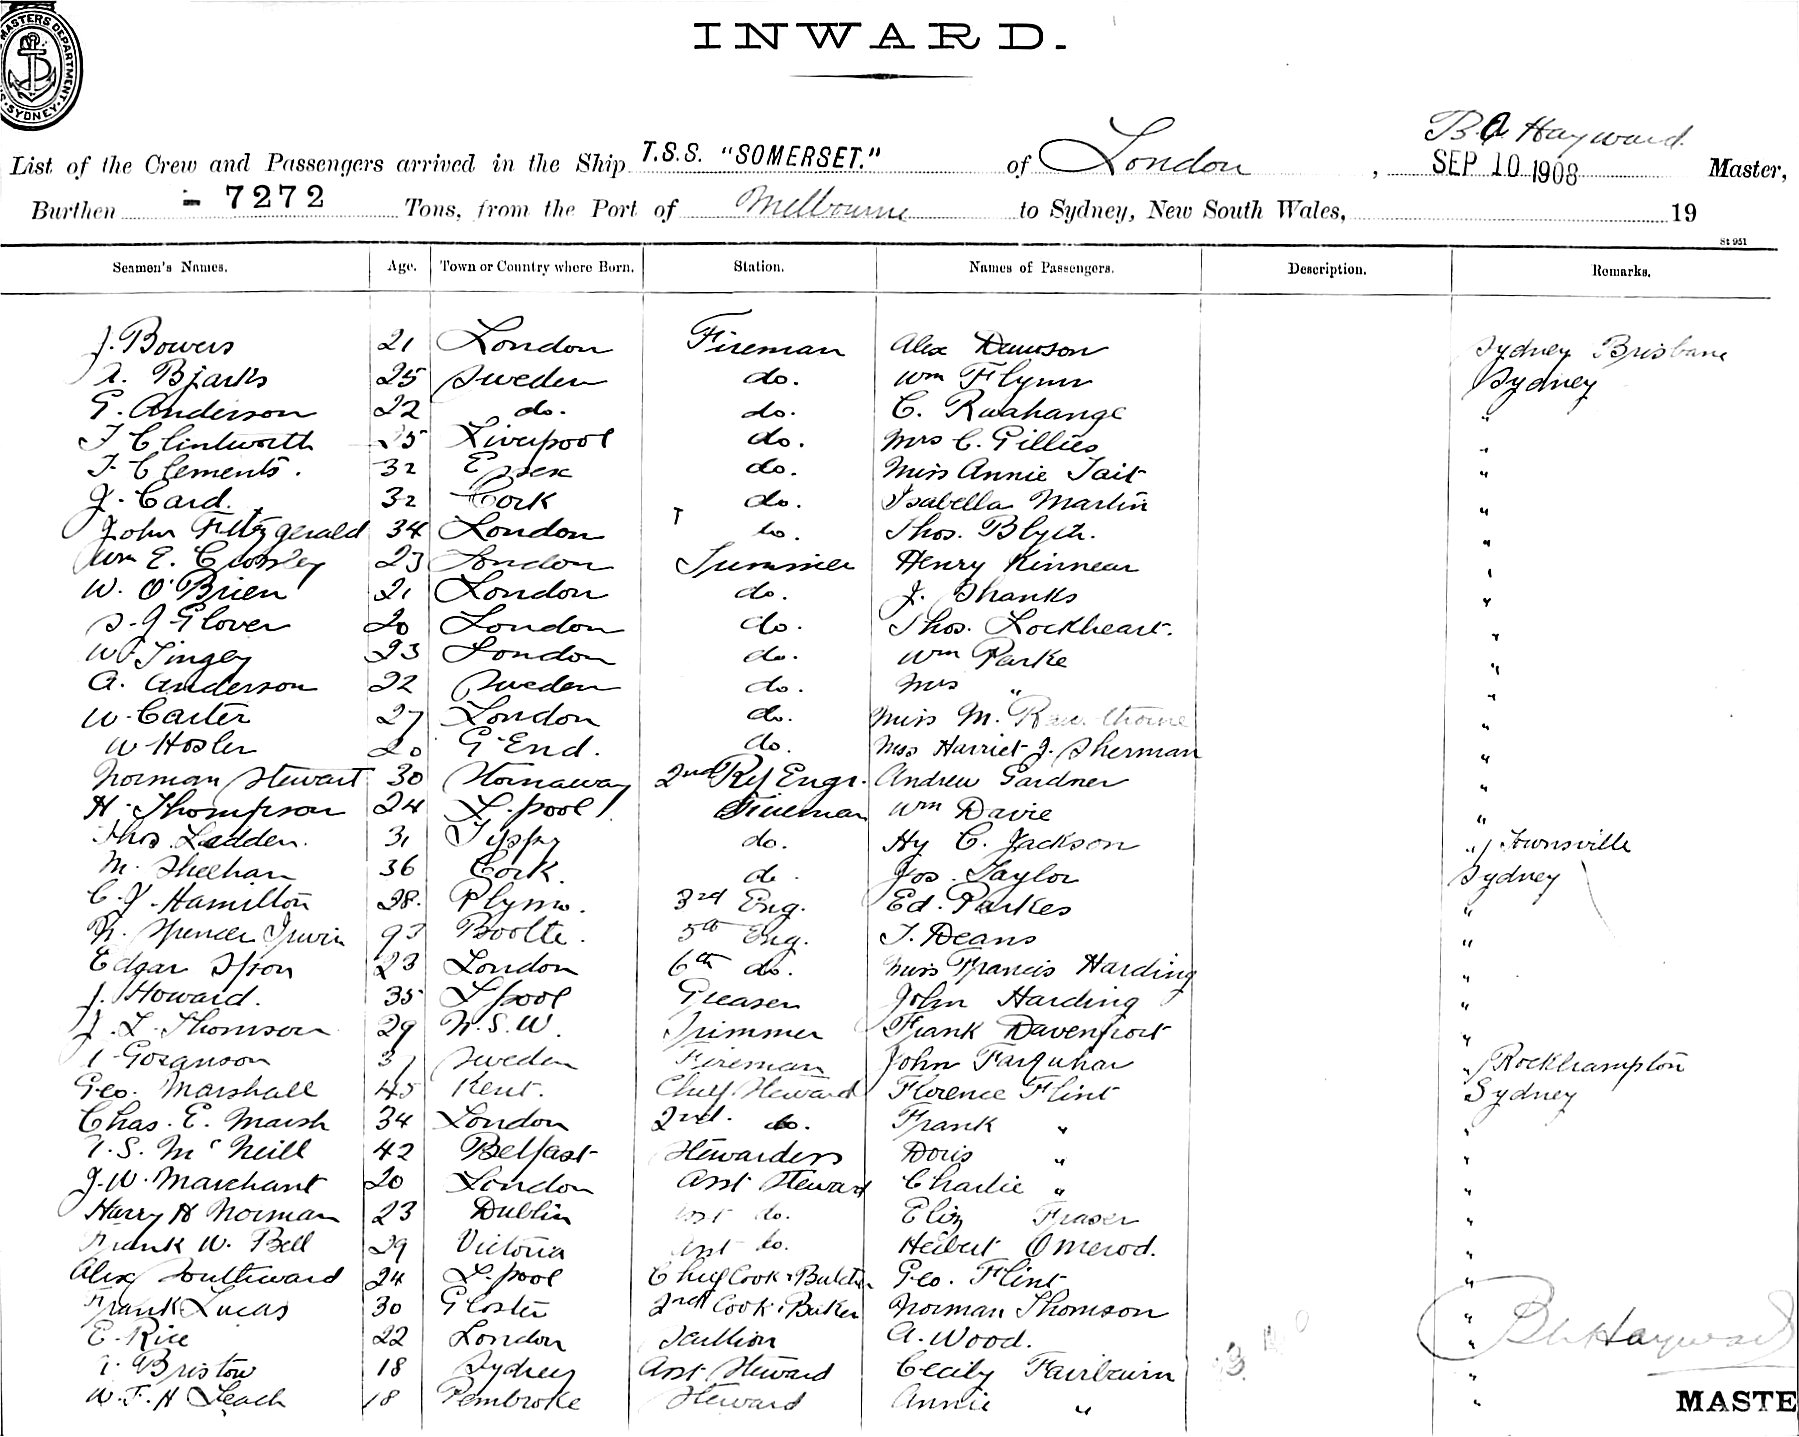 MASTERS DEPARTMENT
SYDNEY
INWARD.
B.A Hayward.
List of the Crew and Passengers arrived in the Ship T.S.S. "SOMERSET." of London, SEP 10 1908 Master,
Burthen 7272 Tons, from the Port of Melbourne to Sydney, New South Wales, 19
St 951
Seamen's Names. Age. Town or Country where Born. Station. Names of Passengers. Description. Remarks.
J. Bowers 21 London Fireman Alex Dawson Sydney Brisbane
A. Bjarks 25 Sweden do. Wm Flynn Sydney
G. Anderson 22 do. do. C. Ruahange "
T Clintworth 25 Liverpool do. Mrs C. Gillies "
T. Clements. 32 Essex do. Miss Annie Tait "
J. Card. 32 Cork do. Isabella Martin "
John Fitzgerald 34 London do. Thos. Blyth. "
Wm E. Crossley 23 London Trimmer Henry Kinnear "
W. O'Brien 21 London do. J. Shanks "
S. J Glover 20 London do. Thos. Lockheart. "
W Tingey 23 London do. Wm Parke "
A. Anderson 22 Sweden do. Mrs " "
W. Carter 27 London do. Miss M. Rawthorne "
W Hosler 20 G End. do. Miss Harriet J. Sherman "
Norman Stewart 30 Stornaway 2nd Ref Engr. Andrew Gardner "
H. Thompson 24 L.pool Fireman Wm Davie "
Thos. Ladden. 31 Tippy do. Hy C. Jackson " Townsville
M. Sheehan 36 Cork. do. Jos. Taylor Sydney
C. J. Hamilton 28. Plym. 3rd Eng. Ed. Parkes "
N. Spencer Irwin 23 Bootle. 5th Eng. T. Deans "
Edgar 23 London 6th do. Miss Francis Harding "
J. Howard. 35 L'pool Greaser John Harding "
J. L. Thomson 29 N.S.W. Trimmer Frank Davenport "
Goranson 31 Sweden Fireman John Farquhar " Rockhampton
Geo. Marshall 45 Kent. Chief Steward Florence Flint Sydney
Chas. E. Marsh 34 London 2nd. do. Frank " "
T. S. McNeill 42 Belfast Stewardess Doris " "
J. W. Marchant 20 London Asst Steward Charlie " "
Harry H Norman 23 Dublin Asst do. Eliz Fraser "
Frank W. Bell 29 Victoria Asst do. Herbert Omerod. "
Alex Southward 24 L.pool Chief Cook & Butcher Geo. Flint "
Frank Lucas 30 Gloster 2nd Cook & Baker Norman Thomson "
E. Rice 22 London Scullion A. Wood. "
T. Bristow 18 Sydney Asst Steward Cecily Fairbairn "
W. F. H Leach 18 Pembroke Steward Annie " "
B A Hayward
MASTE